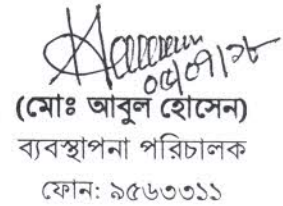 ০৫/০৭/১৮
(মোঃ আবুল হোসেন)
ব্যবস্থাপনা পরিচালক
ফোন: ৯৫৬৩৩১১